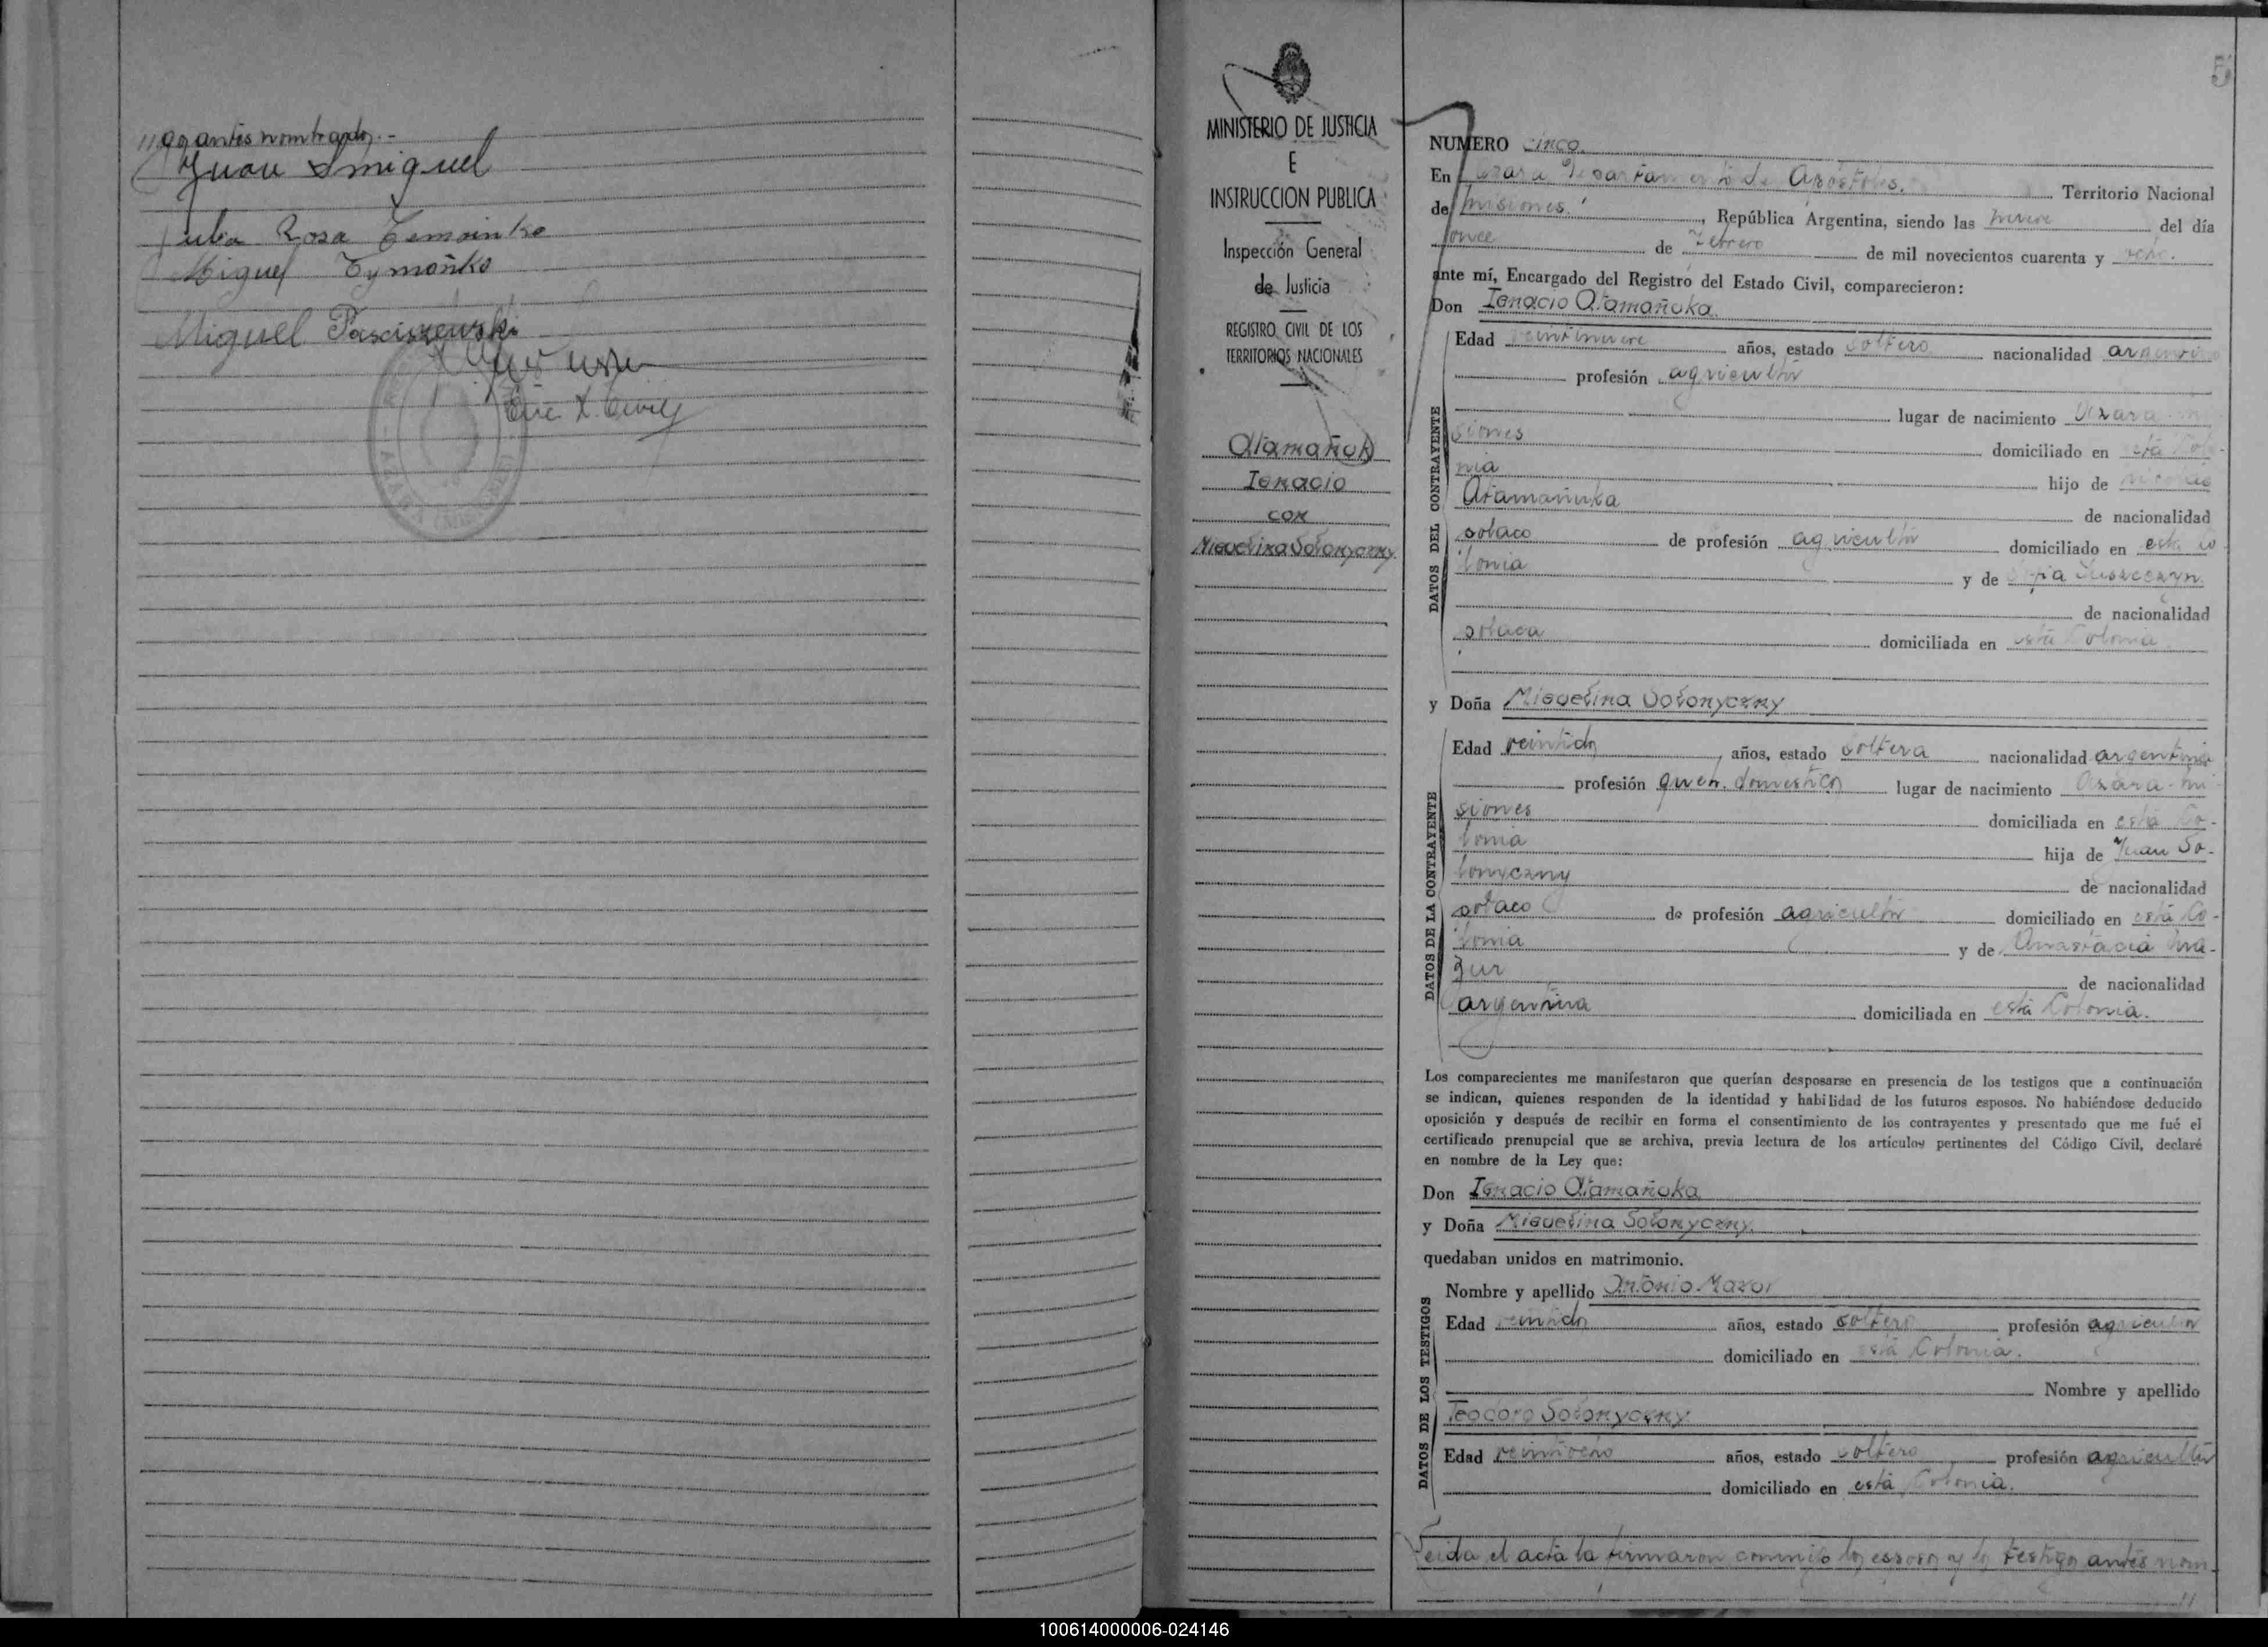 antes nombrados.-
Juan Smiguel
Julia Rosa Temoinko
Miguel Tymoñko
Miguel Pasciszewski
Enc. R. Civil
MINISTERIO DE JUSTICIA
E
INSTRUCCION PUBLICA
Inspección General
de Justicia
REGISTRO CIVIL DE LOS
TERRITORIOS NACIONALES
Atamañuk
Ignacio
con
Miguelina Solonyczny
5
NUMERO cinco.
En Azara Departamento de Apóstoles. Territorio Nacional
de Misiones, República Argentina, siendo las nueve del día
once de Febrero de mil novecientos cuarenta y ocho.
ante mí, Encargado del Registro del Estado Civil, comparecieron:
Don Ignacio Atamañuka.
DATOS DEL CONTRAYENTE
Edad veintinueve años, estado soltero nacionalidad argentino
profesión agricultor
lugar de nacimiento Azara Mi
siones domiciliado en ésta Colo-
nia hijo de Nicolás
Atamañuka de nacionalidad
polaco de profesión agricultor domiciliado en esta Co-
lonia y de Sofia Juszczezyn
de nacionalidad
polaca domiciliada en ésta Colonia
y Doña Miguelina Solonyczny
DATOS DE LA CONTRAYENTE
Edad veintidos años, estado soltera nacionalidad argentina
profesión queh. domesticos lugar de nacimiento Azara-Mi
siones domiciliada en ésta Co-
lonia hija de Juan So-
lonyczny de nacionalidad
polaco de profesión agricultor domiciliado en ésta Co-
lonia y de Anastacia Ma-
zur de nacionalidad
argentina domiciliada en ésta Colonia.
Los comparecientes me manifestaron que querían desposarse en presencia de los testigos que a continuación
se indican, quienes responden de la identidad y habilidad de los futuros esposos. No habiéndose deducido
oposición y después de recibir en forma el consentimiento de los contrayentes y presentado que me fué el
certificado prenupcial que se archiva, previa lectura de los artículos pertinentes del Código Civil, declaré
en nombre de la Ley que:
Don Ignacio Atamañuka
y Doña Miguelina Solonyczny.
quedaban unidos en matrimonio.
DATOS DE LOS TESTIGOS
Nombre y apellido Antonio Mazur
Edad veintidos años, estado soltero profesión agricultor
domiciliado en ésta Colonia.
Nombre y apellido
Teodoro Solonyczny.
Edad veintiocho años, estado soltero profesión agricultor
domiciliado en ésta Colonia.
Leida el acta la firmaron conmigo los esposos y los testigos antes nom-
100614000006-024146